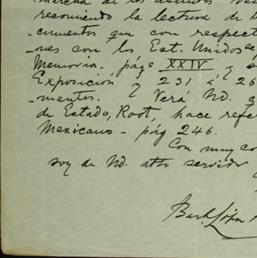 marcha de los asuntos
recomiendo la lectura de
cumentos que con respect
nes con los Est. Unidos
Memoria. pág. XXIV y
Exposición y 231 á 26
mentos. Verá Ud. q
de Estado, Root, hace refe
Mexicano - pág 246.
Con muy co
soy de Ud. atto servidor